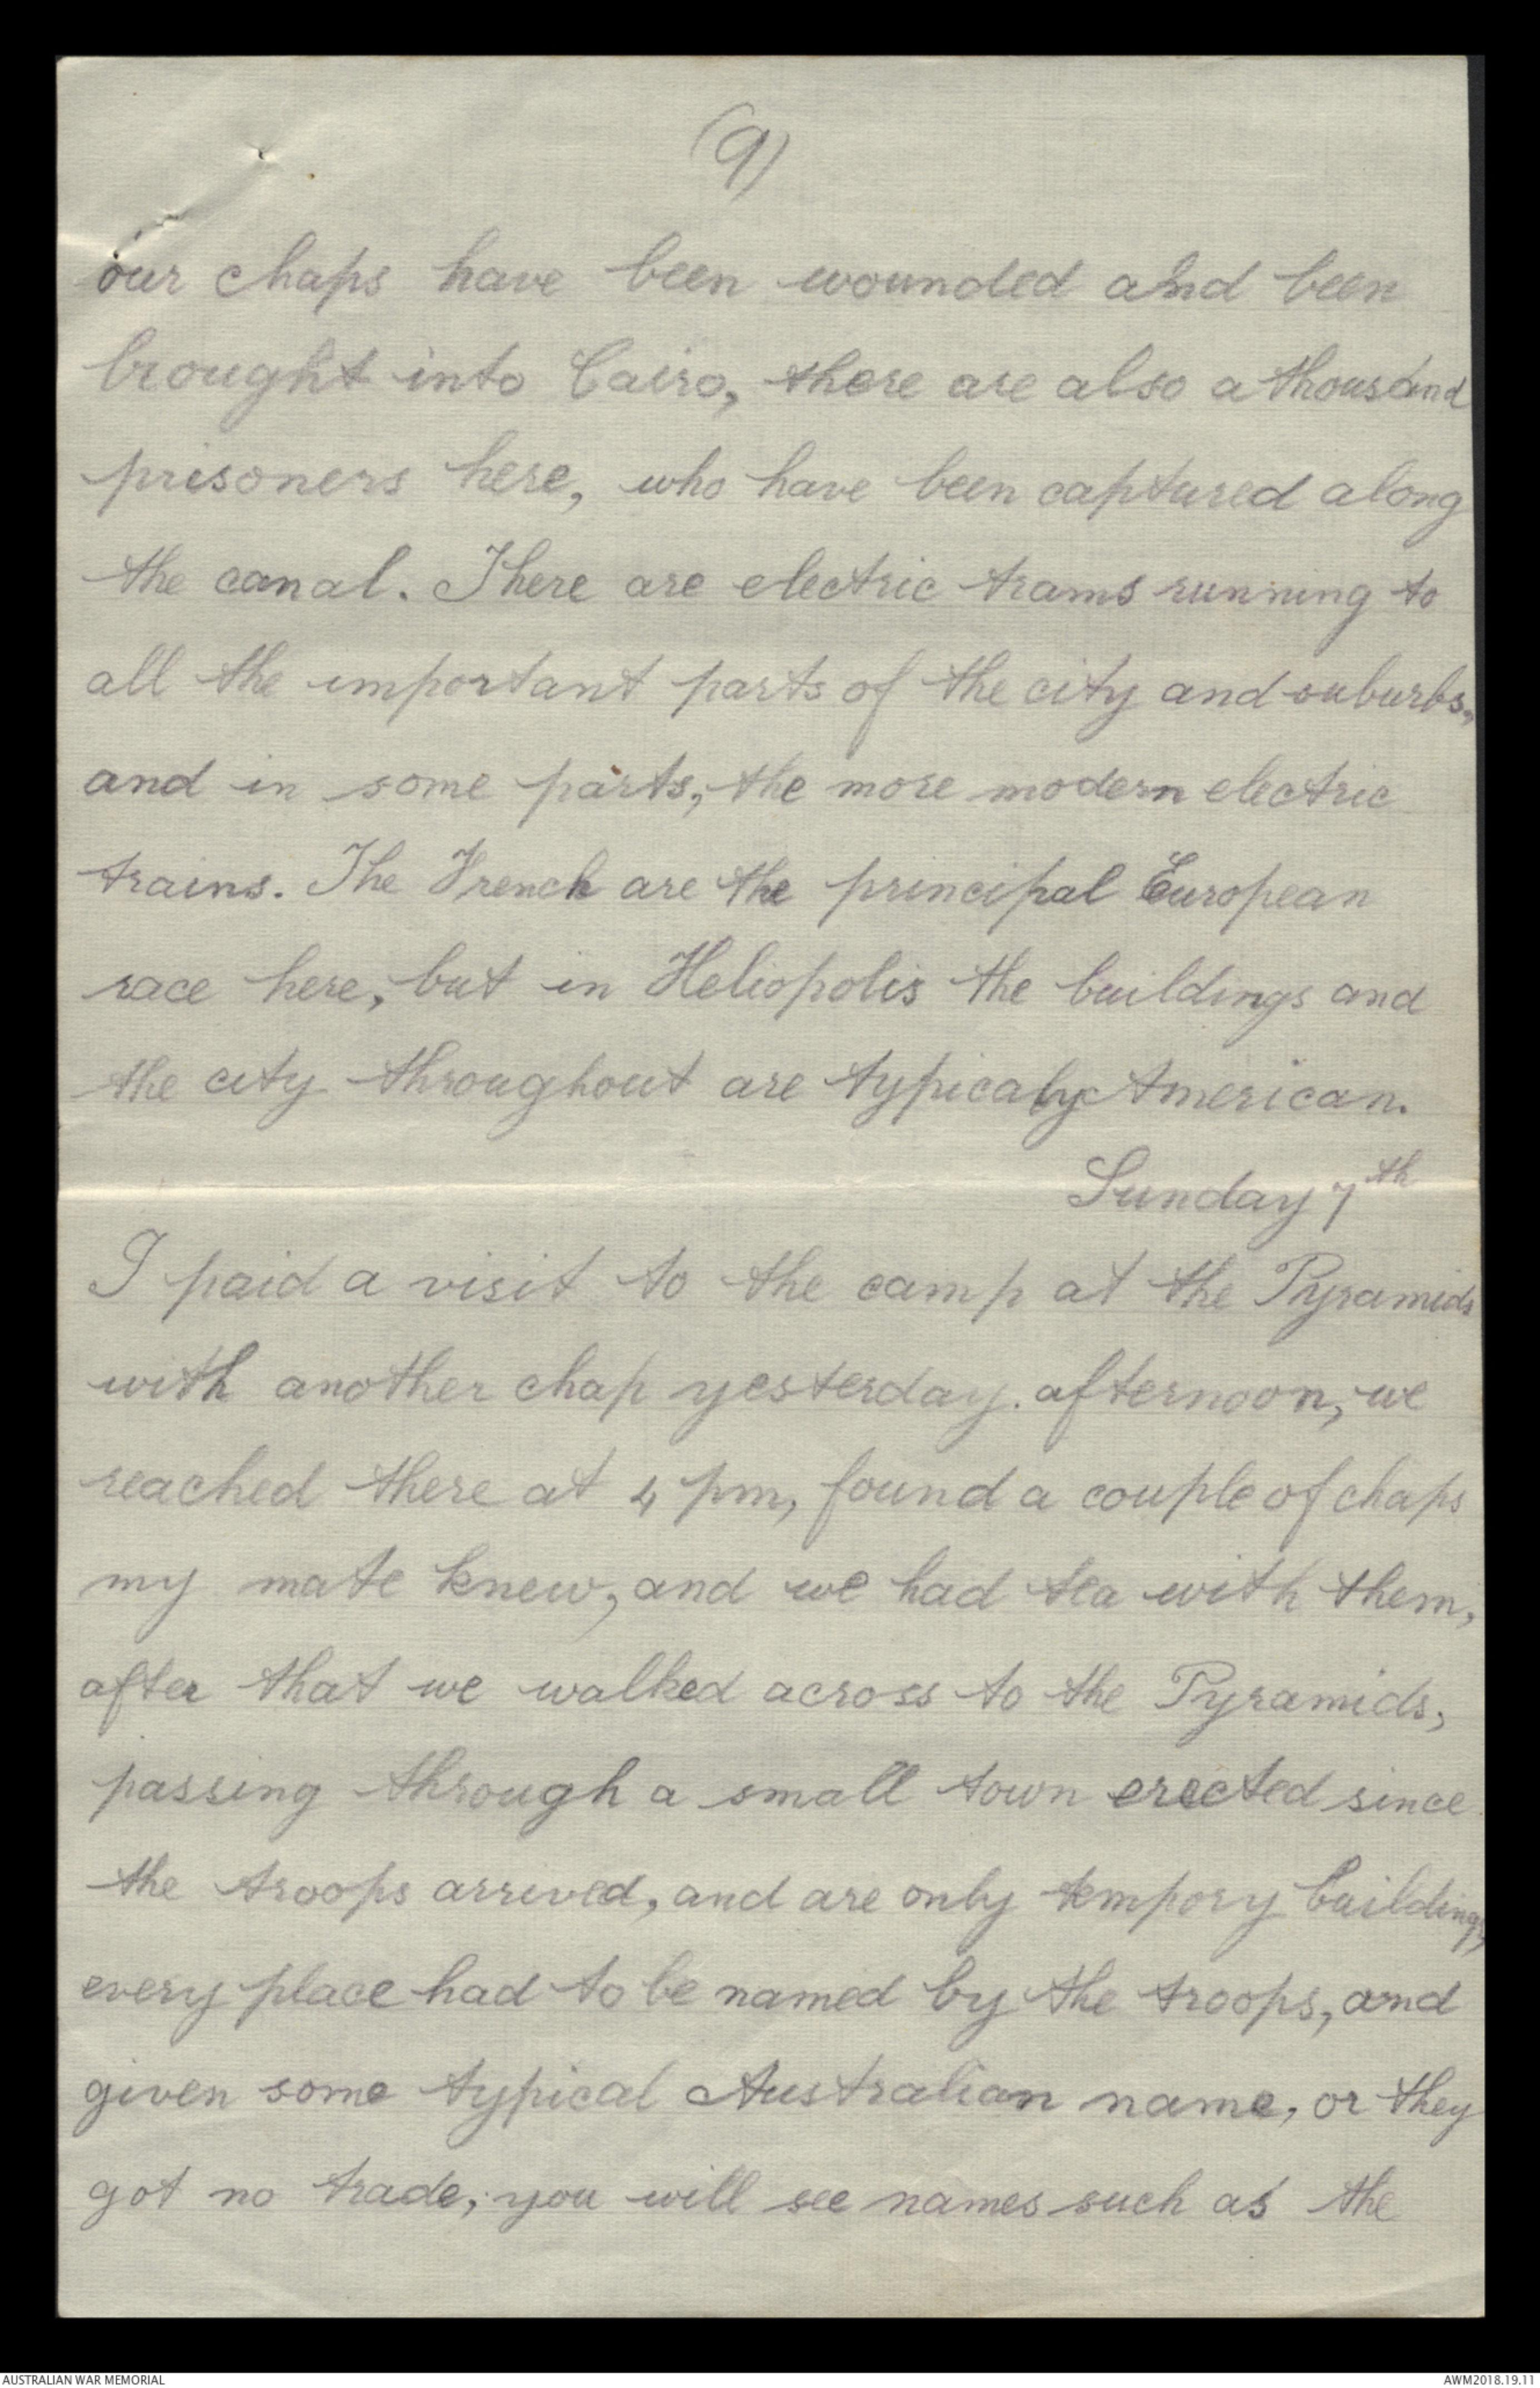 (9)
our chaps have been wounded and been
brought into Cairo, there are also a thousand
prisoners here, who have been captured along
the canal. There are electric trams running to
all the important parts of the city and suburbs,
and in some parts, the more modern electric
trains. The French are the principal European
race here, but in Heliopolis the buildings and
the city throughout are typicaly American.
Sunday 7th
I paid a visit to the camp at the Pyramids
with another chap yesterday. afternoon, we
reached there at 4 pm, found a couple of chaps
my mate knew, and we had tea with them,
after that we walked across to the Pyramids,
passing through a small town erected since
the troops arrived, and are only tempory buildings,
every place had to be named by the troops, and
given some typical Australian name, or they
got no trade, you will see names such as the
AUSTRALIAN WAR MEMORIAL
AWM2018.19.11